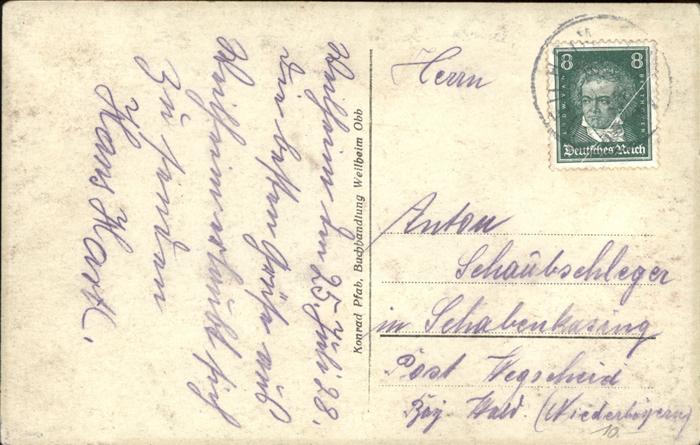 Weilheim den 25. Juli 28.
Die besten Grüße aus
Weilheim
Hans Hartl.
Konrad Pfab, Buchhandlung Weilheim Obb
Herrn
Anton
Schaubschleger
in Schabenkasing
Post Wegscheid
Bay. Wald (Niederbayern)
10
8 8
LUDW. VAN BEETHOVEN
Deutsches Reich